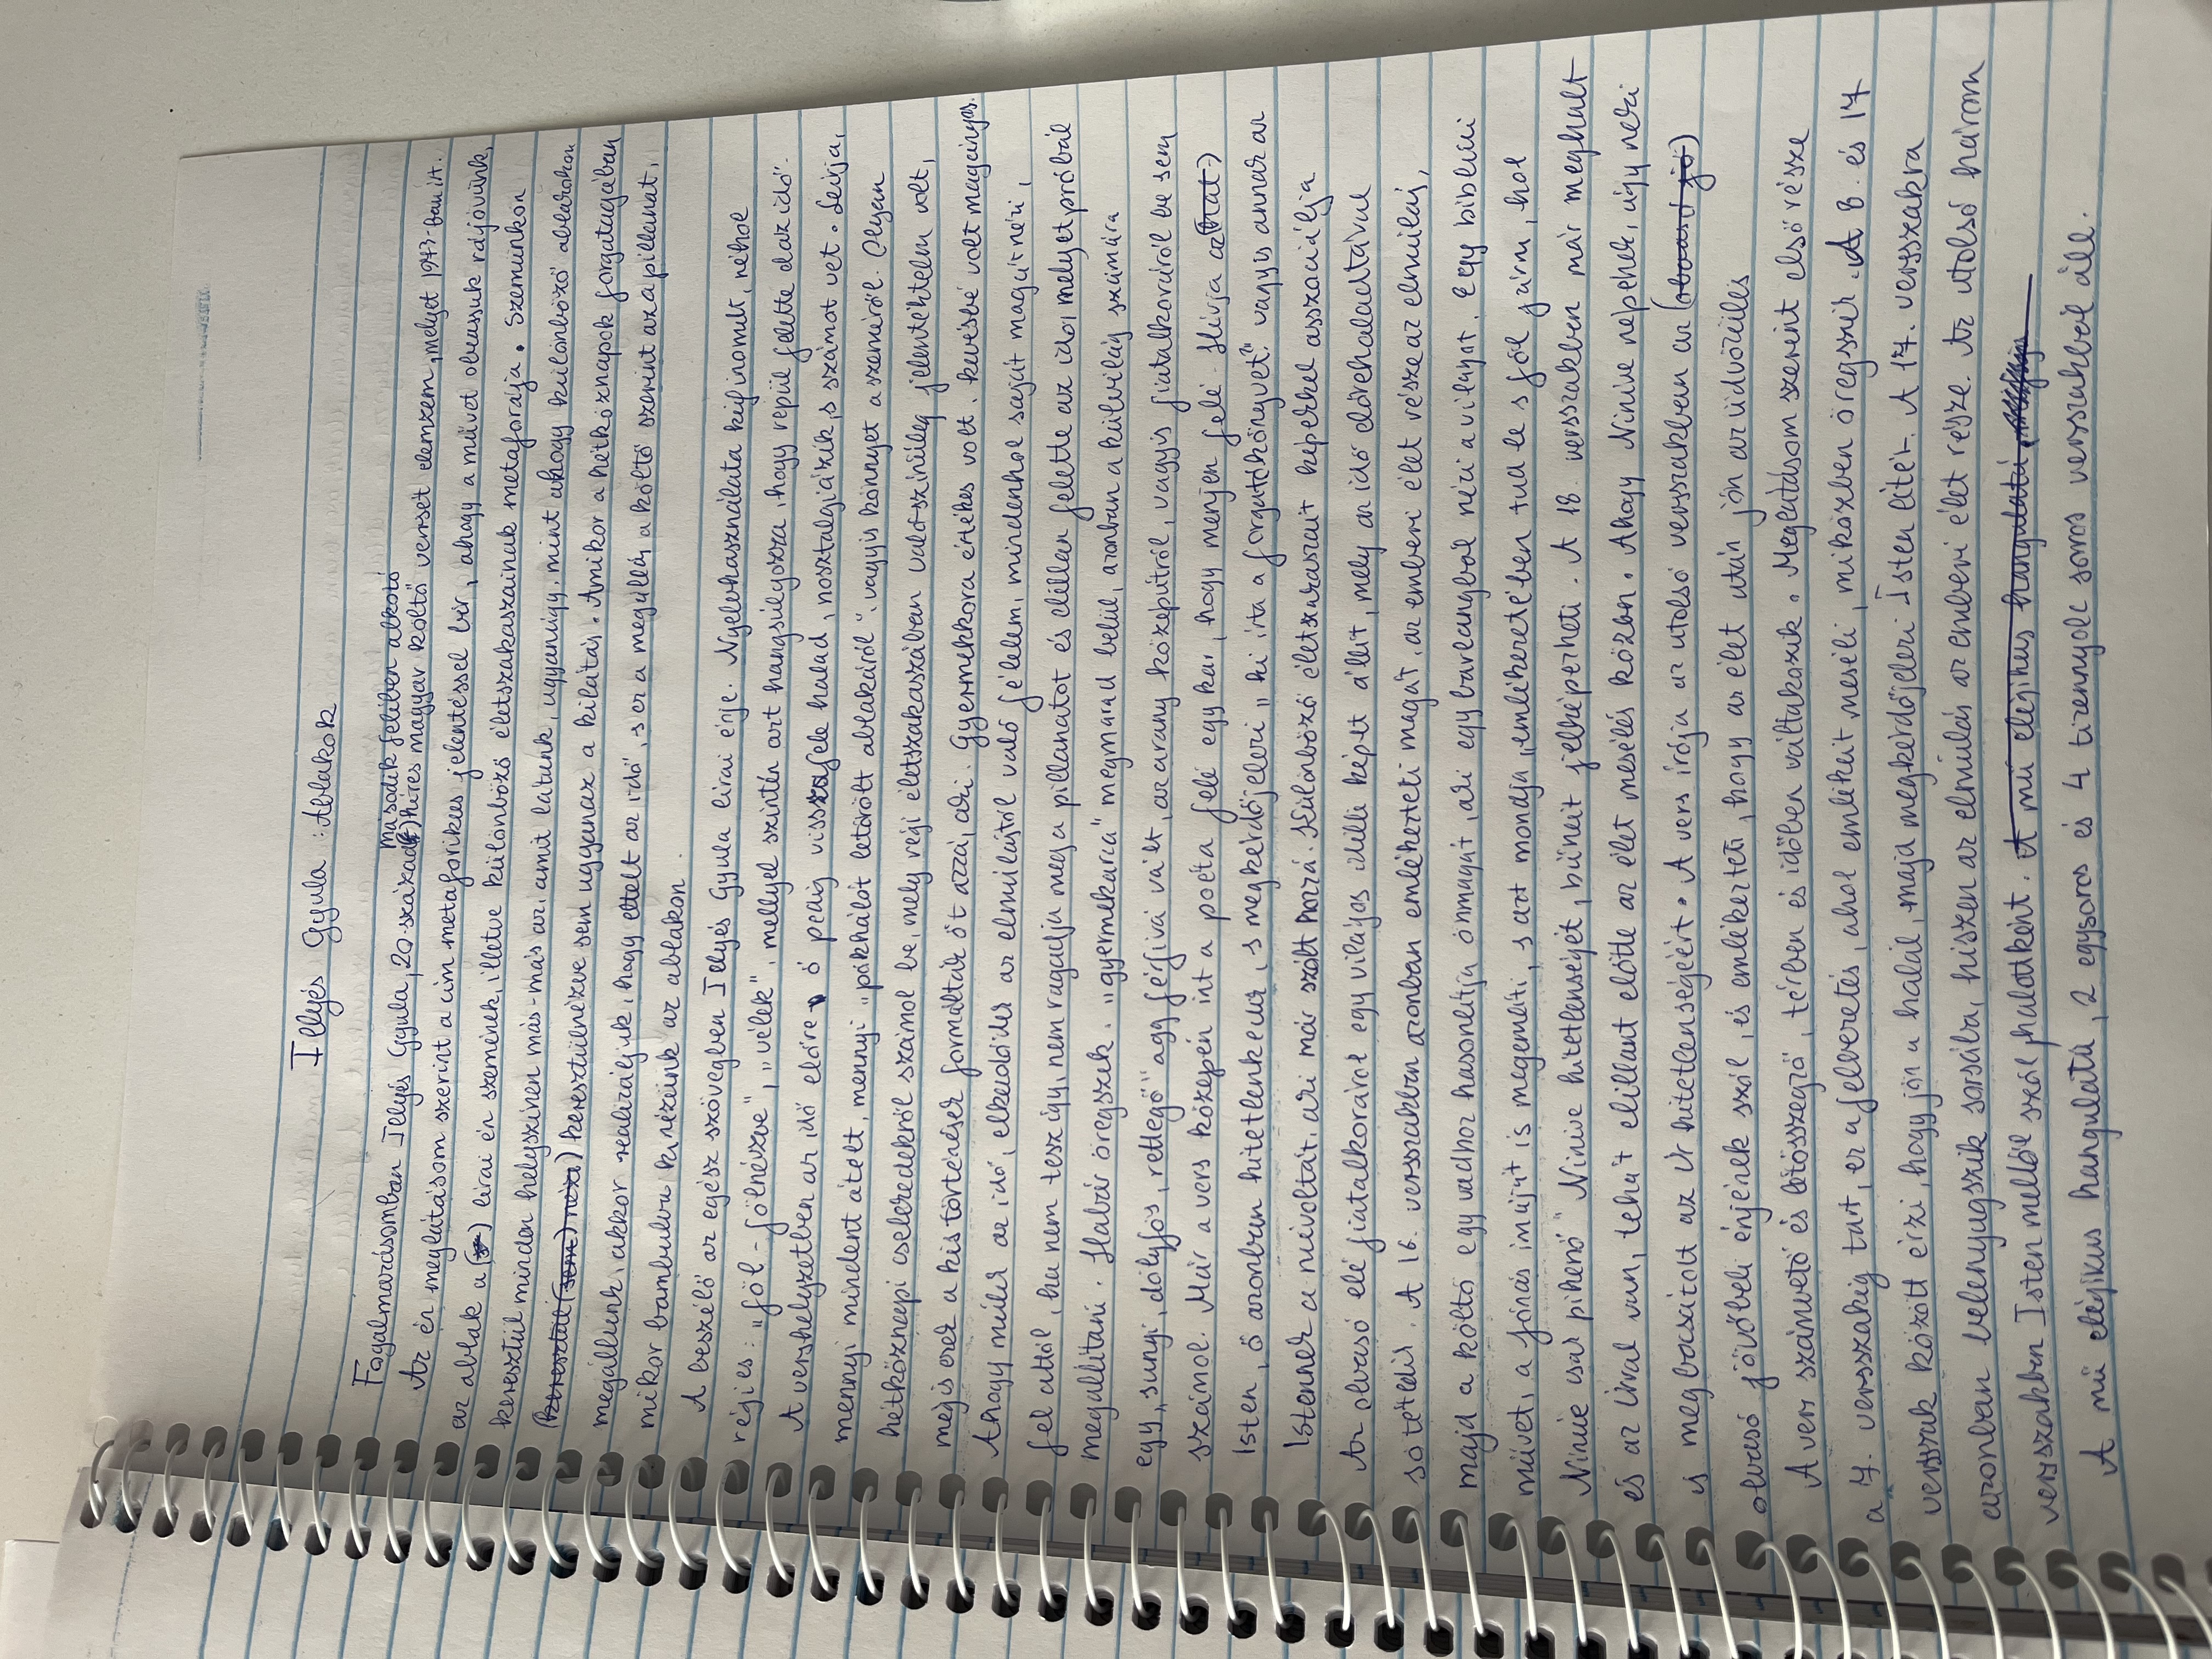 Illyés Gyula: Ablakok
Fogalmazásomban Illyés Gyula, 20. század második felében alkotó híres magyar költő versét elemzem, melyet 1973-ban írt.
Az én meglátásom szerint a cím metaforikus jelentéssel bír, ahogy a művet olvassuk rájövünk,
az ablak a lírai én szemének, illetve különböző életszakaszainak metaforája. Szemünkön
keresztül minden helyszínen más-más az, amit látunk, ugyanúgy, mint ahogy különböző ablakokon
(keresztül (sem) nézx) keresztülnézve sem ugyanaz a kilátás. Amikor a hétköznapok forgatagában
megállunk, akkor realizáljuk, hogy eltelt az idő, s ez a megállás a költő szerint az a pillanat,
mikor bambulva kinézünk az ablakon.
A beszélő az egész szövegben Illyés Gyula lírai énje. Nyelvhasználata kifinomult, néhol
régies: "föl-fölnézve", "vélek", mellyel szintén azt hangsúlyozza, hogy repül felette el az idő.
A vershelyzetben az idő előre ő pedig visszafele halad, nosztalgiázik, s számot vet. Leírja,
mennyi mindent átélt, mennyi "pókhálót letörölt ablakáról", vagyis könnyet a szeméről. Olyan
hétköznapi cselekedekről számol be, mely régi életszakaszában valószínűleg jelentéktelen volt,
mégis ezek a kis történések formálták őt azzá, aki. Gyermekkora értékes volt, kevésbé volt magányos.
Ahogy múlik az idő, elkezdődik az elmúlástól való félelem, mindenhol saját magát nézi,
fél attól, ha nem tesz így, nem ragadja meg a pillanatot és elillan felette az idő, melyet próbál
megállítani. Habár öregszik, "gyermekarca" megmarad belül, azonban a külvilág számára
egy "sunyi, dölyfös, rettegő" agg férfivá vált, az arany középútról, vagyis fiatalkoráról be sem
számol. Már a vers közepén int a poéta felé egy kar, hogy menjen felé. Hívja az (őtat)
Isten, ő azonban hitetlenkedik, s megkérdőjelezi "ki írta a forgatókönyvet", vagyis annak az
Istennek a mivoltát, aki már szólt hozzá. Különböző életszakaszait képekkel asszociálja
Az olvasó elé fiatalkoráról egy világos idilli képet állít, mely az idő előrehaladtával
sötétedik. A 16. versszakban azonban emlékezteti magát, az emberi élet része az elmúlás,
majd a költő egy vadhoz hasonlítja önmagát, aki egy barlangból nézi a világot. Egy bibliai
művet, a Jónás imáját is megemlíti, s azt mondja "emlékezetében tud le s föl járni, hol
Ninive csak pihenő" Ninive hitetlenségét, bűneit jelképezheti. A 18. versszakben már meghalt
és az Úrral van, tehát elillant előtte az élet mesélés közben. Ahogy Ninive népének, úgy neki
is megbocsátott az Úr hitetlenségéért. A vers írója az utolsó versszakben az (olvasó jö)
olvasó jövőbeli énjének szól, és emlékezteti, hogy az élet után jön az üdvözülés
A vers számvető és létösszegző, térben és időben váltakozik. Meglátásom szerint első része
a 7. versszakig tart, ez a felvezetés, ahol emlékeit meséli, miközben öregszik. A 8. és 17
versszak között érzi, hogy jön a halál, majd megkérdőjelezi Isten létét. A 17. versszakra
azonban belenyugszik sorsába, hiszen az elmúlás az emberi élet része. Az utolsó három
versszakban Isten mellől szól halottként. A mű elégikus hangulatú,
A mű elégikus hangulatú, 2 egysoros és 4 tizennyolc soros versszakból áll.